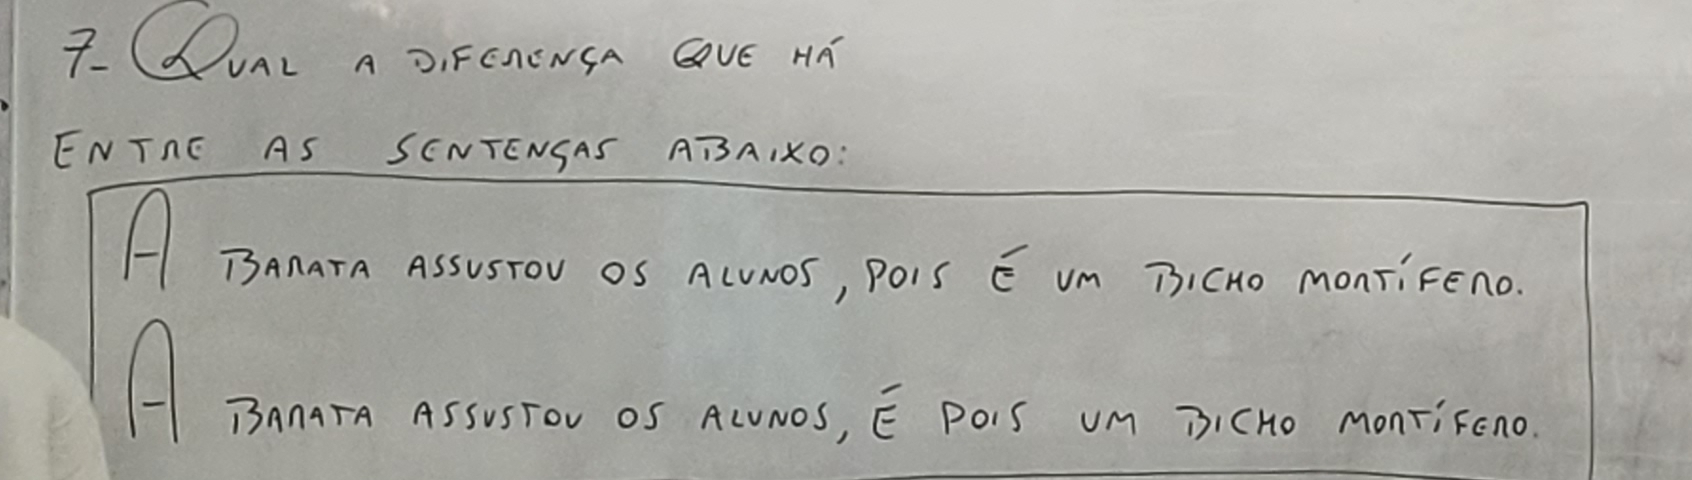 7- QUAL A DIFERENÇA QUE HÁ
ENTRE AS SENTENÇAS ABAIXO:
A BARATA ASSUSTOU OS ALUNOS, POIS É UM BICHO MORTÍFERO.
A BARATA ASSUSTOU OS ALUNOS, É POIS UM BICHO MORTÍFERO.